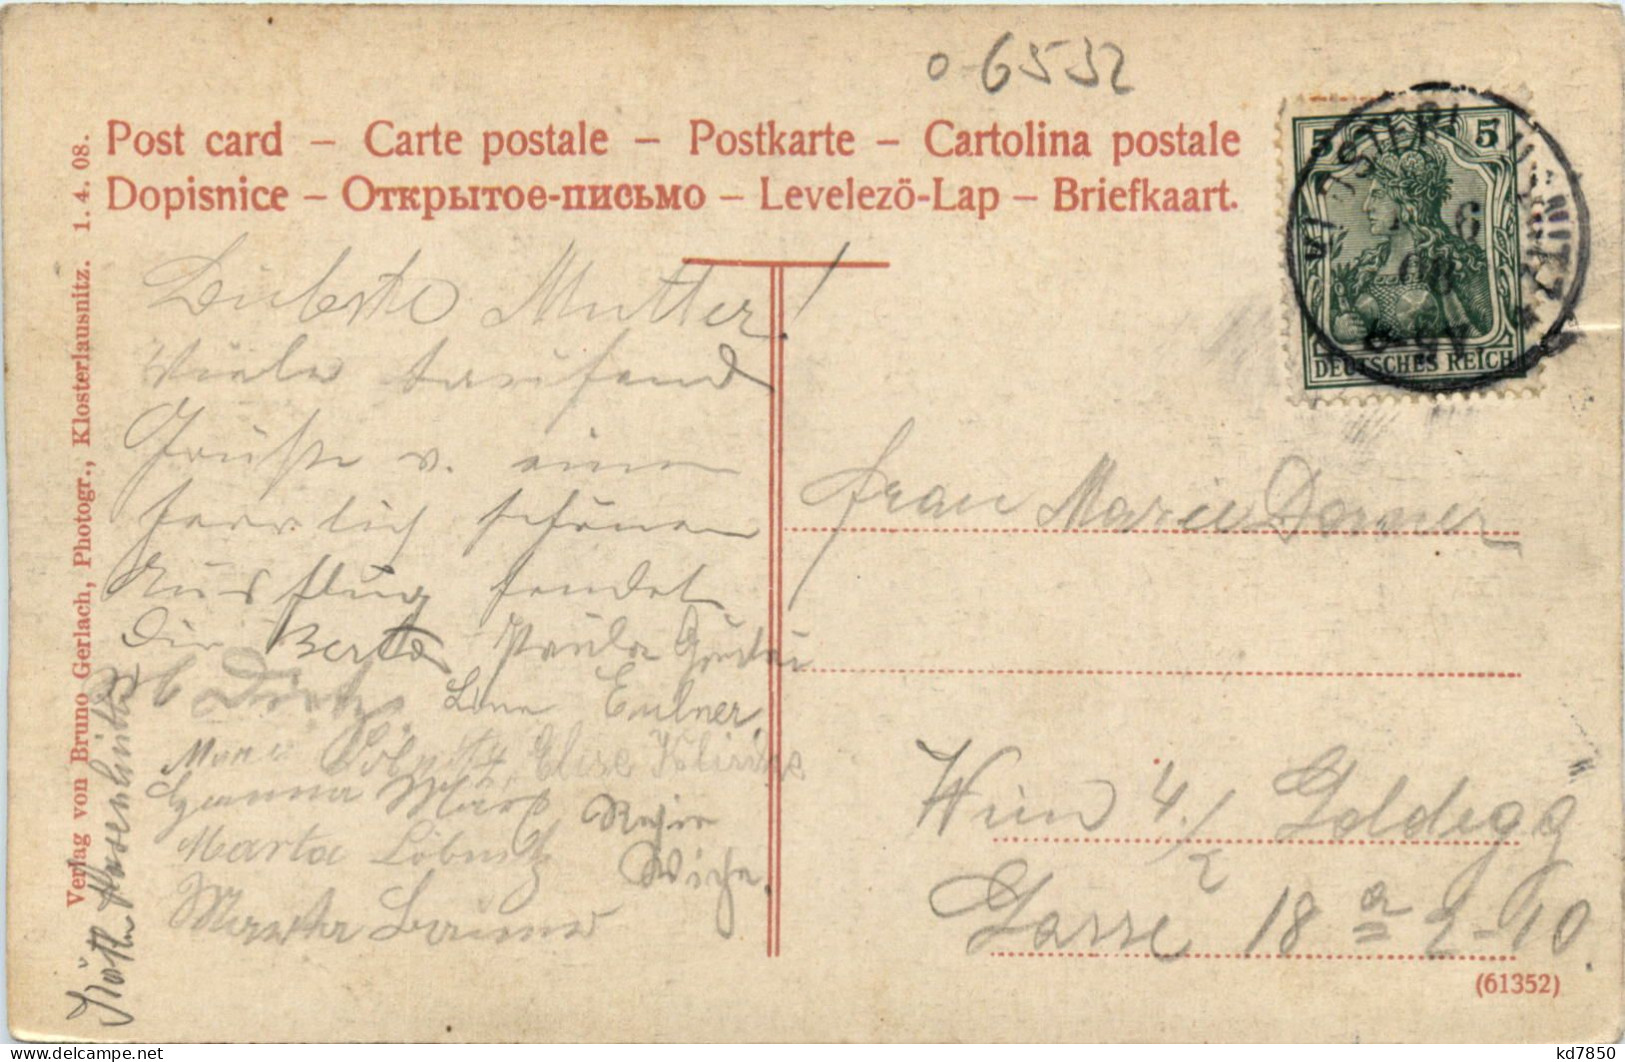 0-6532
Post card – Carte postale – Postkarte – Cartolina postale
Dopisnice – Открытое-письмо – Levelezö-Lap – Briefkaart.
Verlag von Bruno Gerlach, Photogr., Klosterlausnitz. 1. 4. 08.
5 5
DEUTSCHES REICH
6
08
Liebste Mutter!
Viele tausend
Grüße v. einem
herrlich schönen
Ausflug sendet
Dir Berta Paula
Dietz. Lina Eulner
Löbnitz Elise
Hanna März
Marta Löbnitz
Martha
Frau Marie Dorner
Wien 4/2 Goldegg
Gasse 18 a 2-10.
(61352)
kd7850